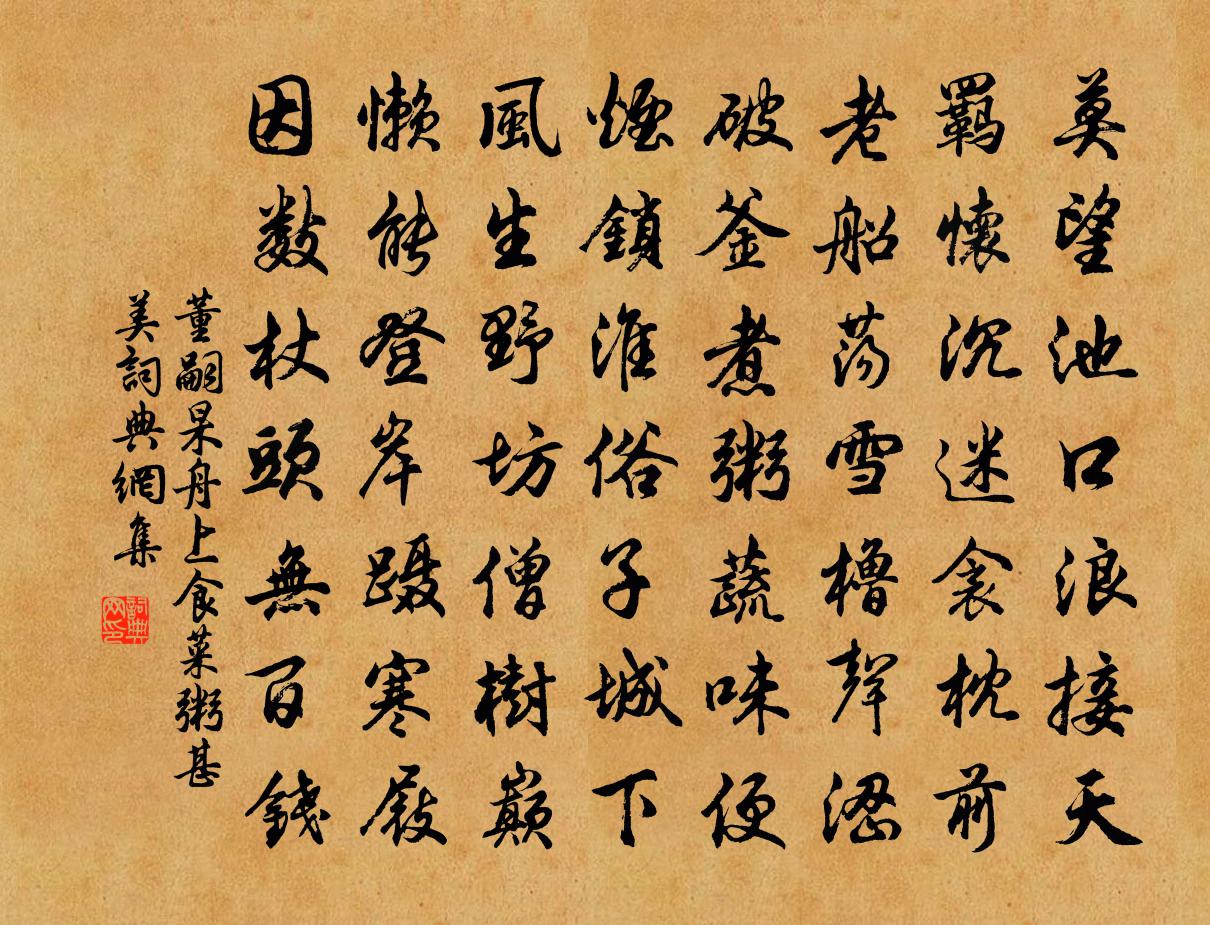 莫望池口浪接天
羈懷沉迷衾枕前
老船蕩雪櫓聲澀
破釜煮粥蔬味便
煙鎖淮俗子城下
風生野坊僧樹巔
懶能登岸躡寒屐
因數杖頭無百錢
董嗣杲舟上食菜粥甚
美詞典網集
詞典
网印